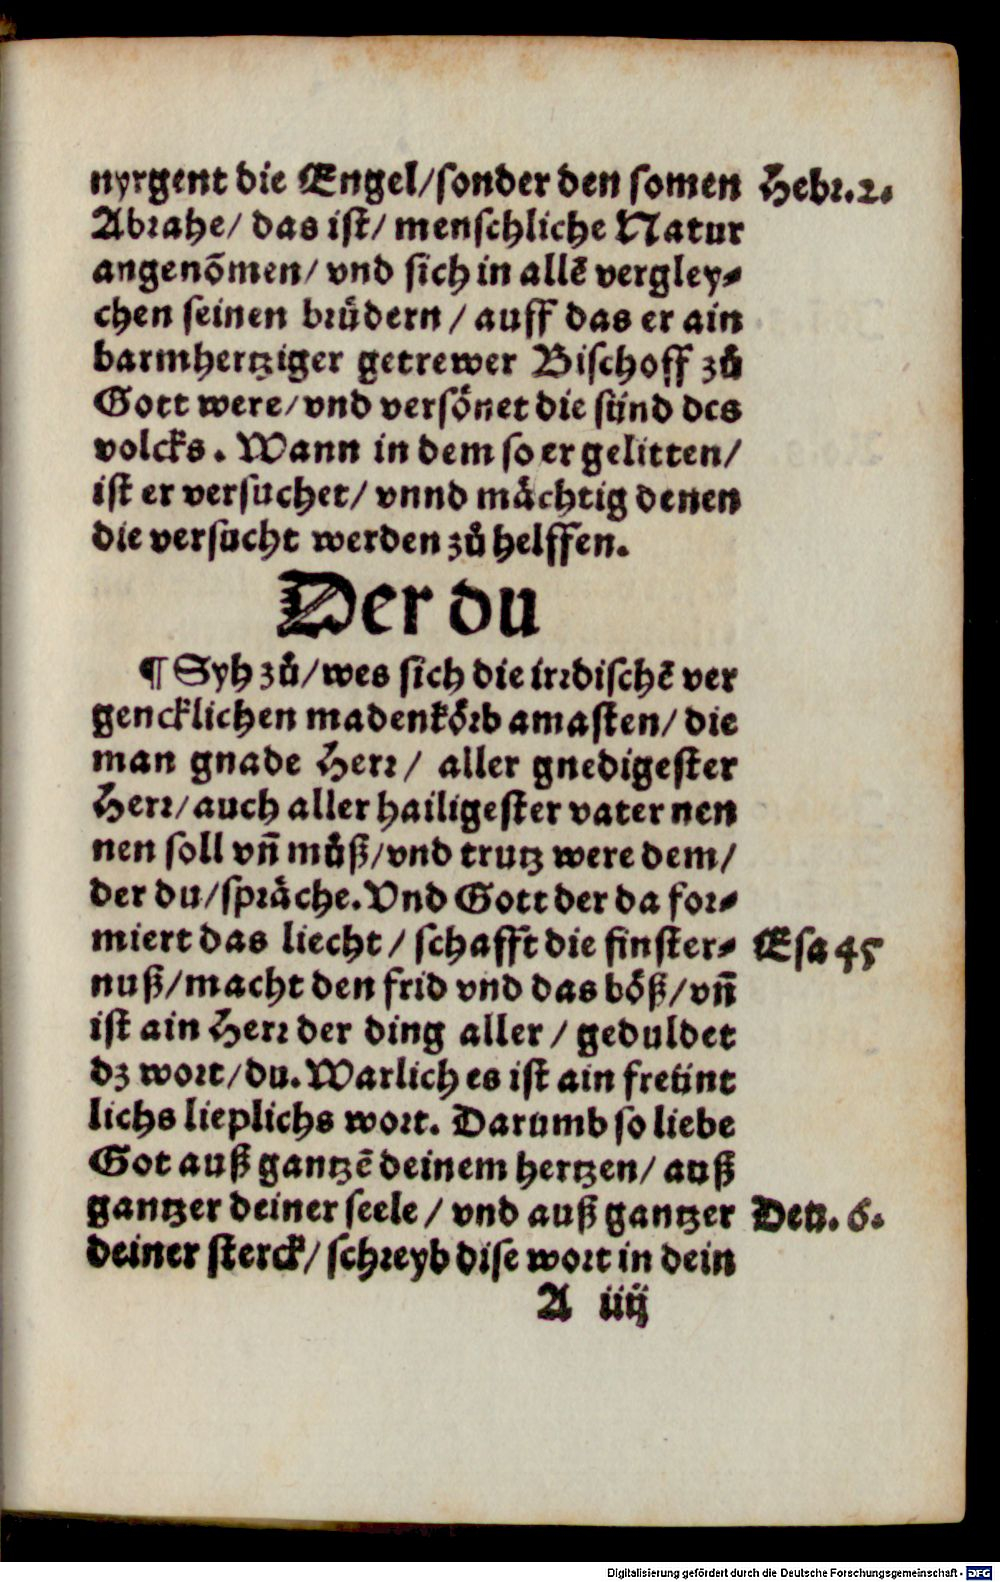 nyrgent die Engel/sonder den somen Hebr.2.
Abrahe/ das ist/ menschliche Natur
angenõmen/ vnd sich in allẽ vergley-
chen seinen brůdern / auff das er ain
barmhertziger getrewer Bischoff zů
Gott were/vnd versönet die sünd des
volcks. Wann in dem so er gelitten/
ist er versuchet/ vnnd mächtig denen
die versucht werden zů helffen.
Der du
¶ Syh zů/wes sich die irrdischẽ ver
gencklichen madenkörb amasten/ die
man gnade Herr/ aller gnedigester
Herr/auch aller hailigester vater nen
nen soll vñ můß/vnd trutz were dem/
der du/spräche. Vnd Gott der da for-
miert das liecht/ schafft die finster- Esa 45
nuß/macht den frid vnd das böß/vñ
ist ain Herr der ding aller / geduldet
dz wort/du. Warlich es ist ain freünt
lichs lieplichs wort. Darumb so liebe
Got auß gantzẽ deinem hertzen/ auß
gantzer deiner seele / vnd auß gantzer Deü. 6.
deiner sterck/ schreyb dise wort in dein
A iiij
Digitalisierung gefördert durch die Deutsche Forschungsgemeinschaft - DFG